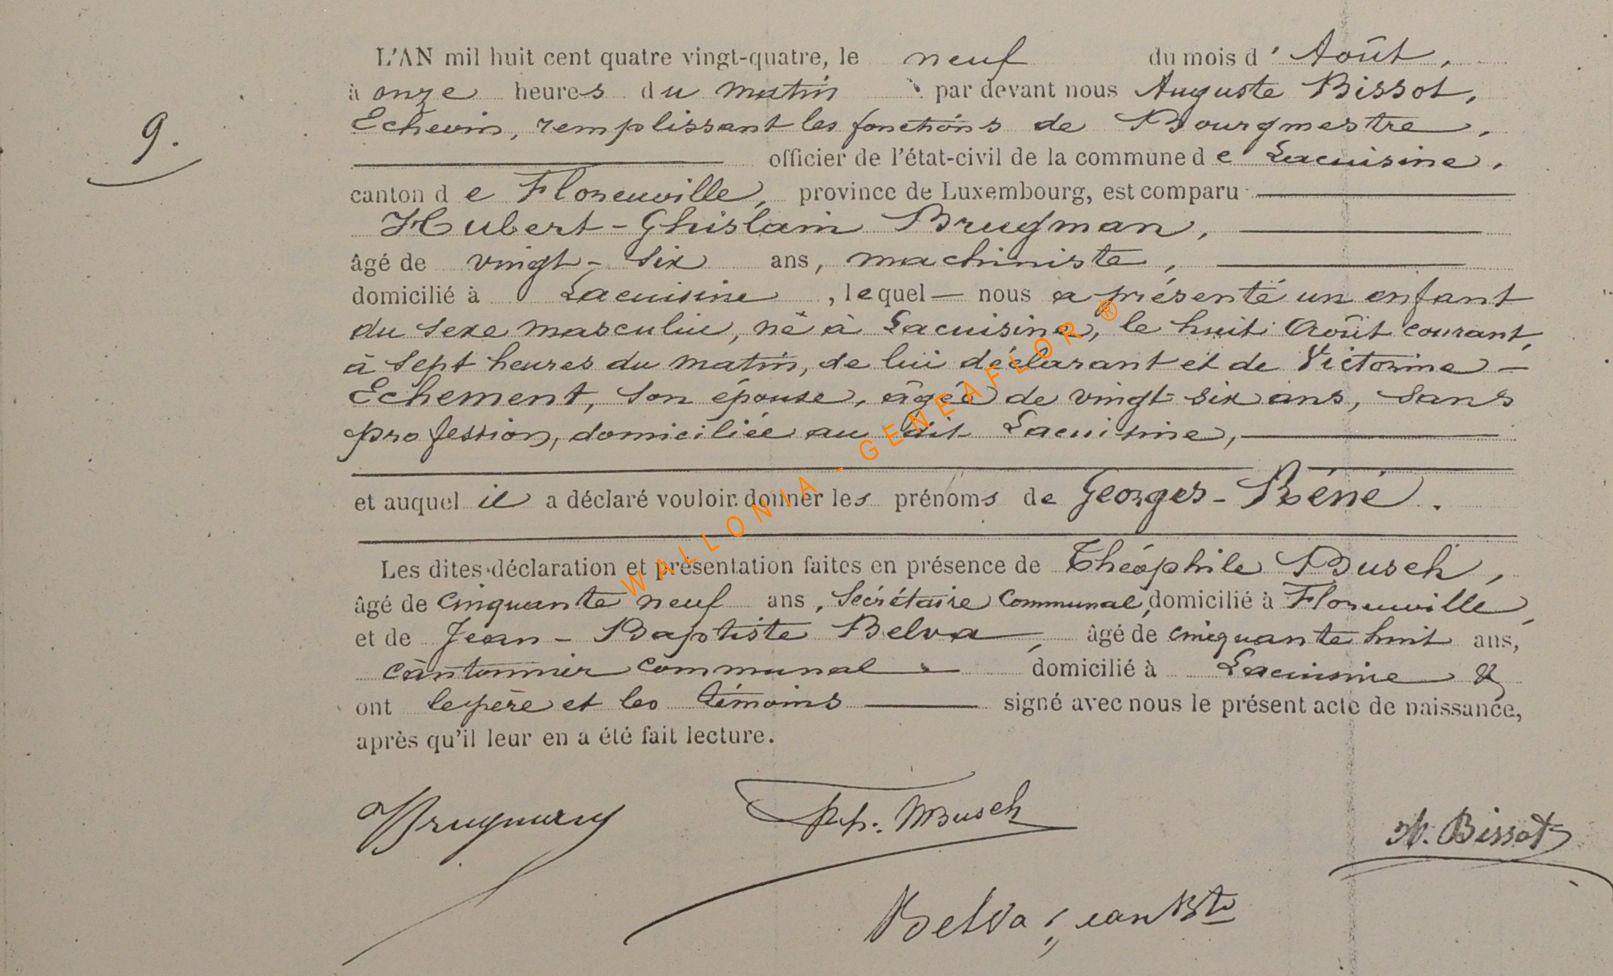 L'AN mil huit cent quatre vingt-quatre, le neuf du mois d'Août,
à onze heures du matin par devant nous Auguste Bissot,
Echevin, remplissant les fonctions de Bourgmestre,
9.
officier de l'état-civil de la commune de Lacuisine,
canton de Florenville, province de Luxembourg, est comparu
Hubert-Ghislain Brugman,
âgé de vingt-six ans, machiniste,
domicilié à Lacuisine, lequel nous a présenté un enfant
du sexe masculin, né à Lacuisine, le huit Août courant,
à sept heures du matin, de lui déclarant et de Victorine
Echement, son épouse, âgée de vingt-six ans, sans
profession, domiciliée au dit Lacuisine,
et auquel il a déclaré vouloir donner les prénoms de Georges-Réné.
Les dites déclaration et présentation faites en présence de Théophile Busch,
âgé de cinquante neuf ans, Secrétaire Communal, domicilié à Florenville,
et de Jean-Baptiste Belva, âgé de cinquante huit ans,
cantonnier communal domicilié à Lacuisine &
ont le père et les témoins signé avec nous le présent acte de naissance,
après qu'il leur en a été fait lecture.
WALLONIA - GENEAFLOR ®
Brugman
Th. Busch
A. Bissot
Belva jean Bte